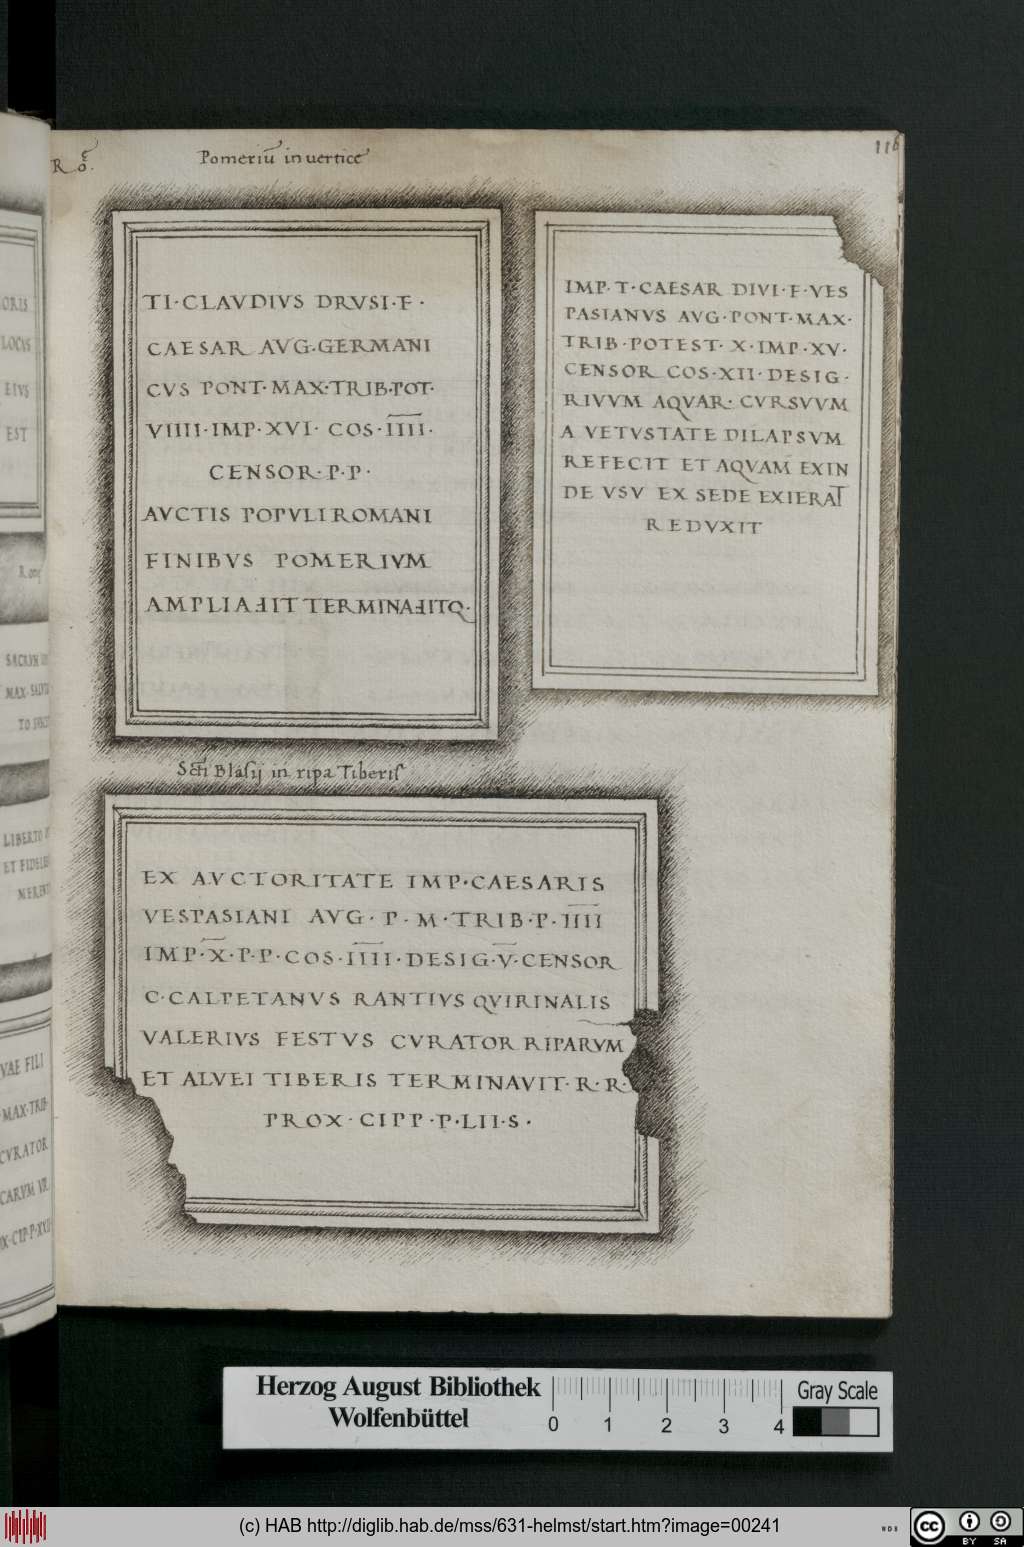 Rōe.
Pomeriū in uertice
116
TI·CLAVDIVS DRVSI·F·
CAESAR AVG·GERMANI
CVS PONT·MAX·TRIB·POT·
VIIII·IMP·XVI· COS·I̅I̅I̅I̅·
CENSOR·P·P·
AVCTIS POPVLI ROMANI
FINIBVS POMERIVM
AMPLIAℲIT TERMINAℲITQ·
IMP·T·CAESAR DIVI·F·VES
PASIANVS AVG·PONT·MAX·
TRIB·POTEST·X·IMP·XV·
CENSOR COS·XII·DESIG·
RIVVM AQVAR·CVRSVVM
A VETVSTATE DILAPSVM
REFECIT ET AQVAM EXIN
DE VSV EX SEDE EXIERAT
REDVXIT
Scti Blasij in ripa Tiberis
EX AVCTORITATE IMP·CAESARIS
VESPASIANI AVG·P·M·TRIB·P·I̅I̅I̅I̅
IMP·X̅·P·P·COS·I̅I̅I̅I̅·DESIG·V̅·CENSOR
C·CALPETANVS RANTIVS QVIRINALIS
VALERIVS FESTVS CVRATOR RIPARVM
ET ALVEI TIBERIS TERMINAVIT·R·R·
PROX·CIPP·P·LII·S·
ORIS
LOCVS
EIVS
EST
SACRVM
MAX·
LIBERTO
ET
VAE FILI
MAX·TRIB·
CVRATOR
Herzog August Bibliothek
Wolfenbüttel
0 1 2 3 4
Gray Scale
(c) HAB http://diglib.hab.de/mss/631-helmst/start.htm?image=00241
WDB
cc BY SA